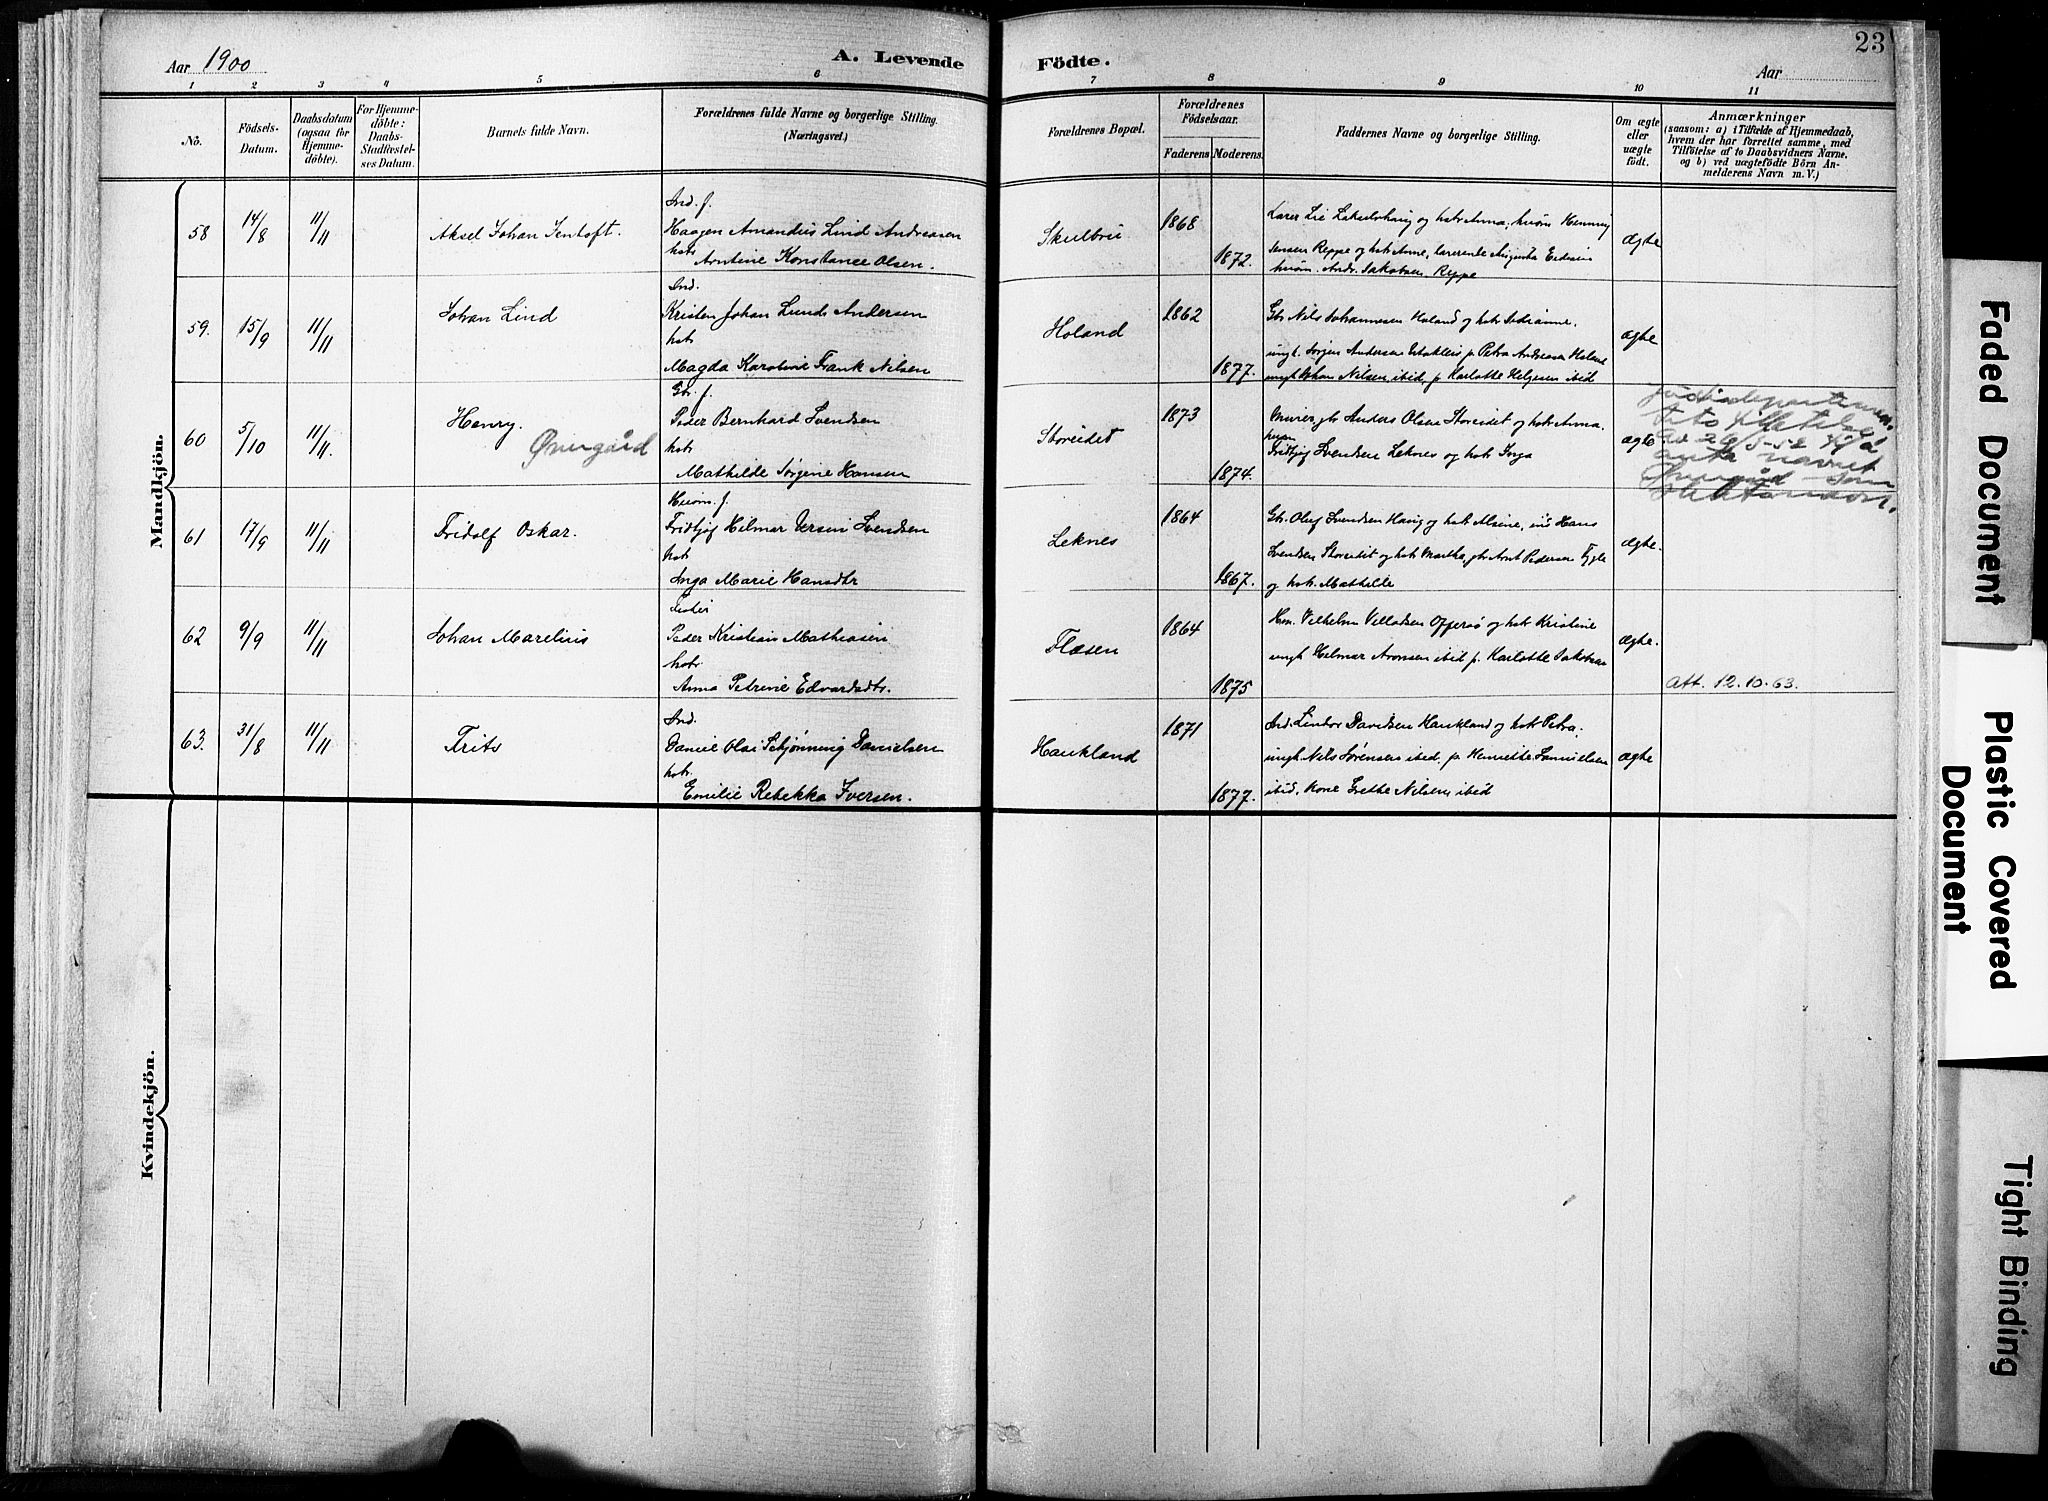 23
Aar 1900
A. Levende
Födte.
Aar
1 2 3 4 5 6 7 8 9 10 11
No.
Födsels-
Datum.
Daabsdatum
(ogsaa for
Hjemme-
döbte).
For Hjemme-
döbte:
Daabs-
Stadfæstel-
ses Datum.
Barnets fulde Navn.
Forældrenes fulde Navne og borgerlige Stilling.
(Næringsvei.)
Forældrenes Bopæl.
Forældrenes
Födselsaar.
Faderens. Moderens.
Faddernes Navne og borgerlige Stilling.
Om ægte
eller
uægte
födt.
Anmærkninger
(saasom: a) i Tilfælde af Hjemmedaab,
hvem der har forrettet samme, med
Tilföielse af to Daabsvidners Navne,
og b) ved uægtefödte Börn An-
melderens Navn m. V.)
Mandkjön.
58 14/8 11/11 Aksel Johan Jentoft.
Ind. f.
Haagen Amandus Lind Andreasen
hstr
Arntine Konstance Olsen.
Skulbru
1868
1872.
og hstr Anna, husm Henning
Jensen Reppe og hstr Anne, lærerenke Augusta
husm. Andr. Jakobsen Reppe
ægte
59. 15/9 11/11 Johan Lind
Ind.
Kristen Johan Lunds Andersen
hstr
Magda Karoline Frank Nilsen
Holand
1862
1877.
Gbr Nils Johannesen Holand og hstr
ungk. Jørgen Andersen p. Petra Andreasen Holand
ungk Johan Nilsen ibid, p Karlotte Helgesen ibid
ægte
60 5/10 11/11. Henry.
Øvergård
Gbr. f.
Peder Bernhard Svendsen
hstr
Mathilde Jørgine Hansen
Storeidet
1873
1874.
Murer, gbr Anders Olsen Storeidet og hstr Anna.
husm
Fridtjof Svendsen Leknes og hstr Inga
ægte
av 26/5-52 til å
anta navnet
Øvergård som
slektsnavn.
61 17/9 11/11 Fridolf Oskar.
Husm. f.
Fridtjof Hilmar Svendsen
hstr
Inga Marie Hansdtr
Leknes
1864
1867.
Gbr. Oluf Svendsen Haug og hstr Alsine, ind Hans
Svendsen Storeidet og hstr Martha, gbr Arnt Pedersen Fygle
og hstr. Mathilde
ægte.
62 9/9 11/11 Johan Marelius
Peder Kristian Mathiasen
hstr
Anna Petrine Edvardsdtr.
Flæsen
1864
1875
Vilhelm Villadsen Offersø og hstr Kristine
ungk Hilmar Aronsen ibid p. Karlotte Jakobsen
ægte.
Att. 12.10.63.
63. 31/8 11/11 Frits
Ind.
Daniel Olai Schjønning Danielsen
hstr
Emilie Rebekka Iversen.
Haukland
1871
1877.
Ind. Davidsen Haukland og hstr Petra,
ungk Nils Sørensen ibid, p. Henriette Samuelsen
ibid, Kone Grethe Nilsen ibid
ægte
Kvindekjön.
Faded Document
Plastic Covered
Document
Tight Binding